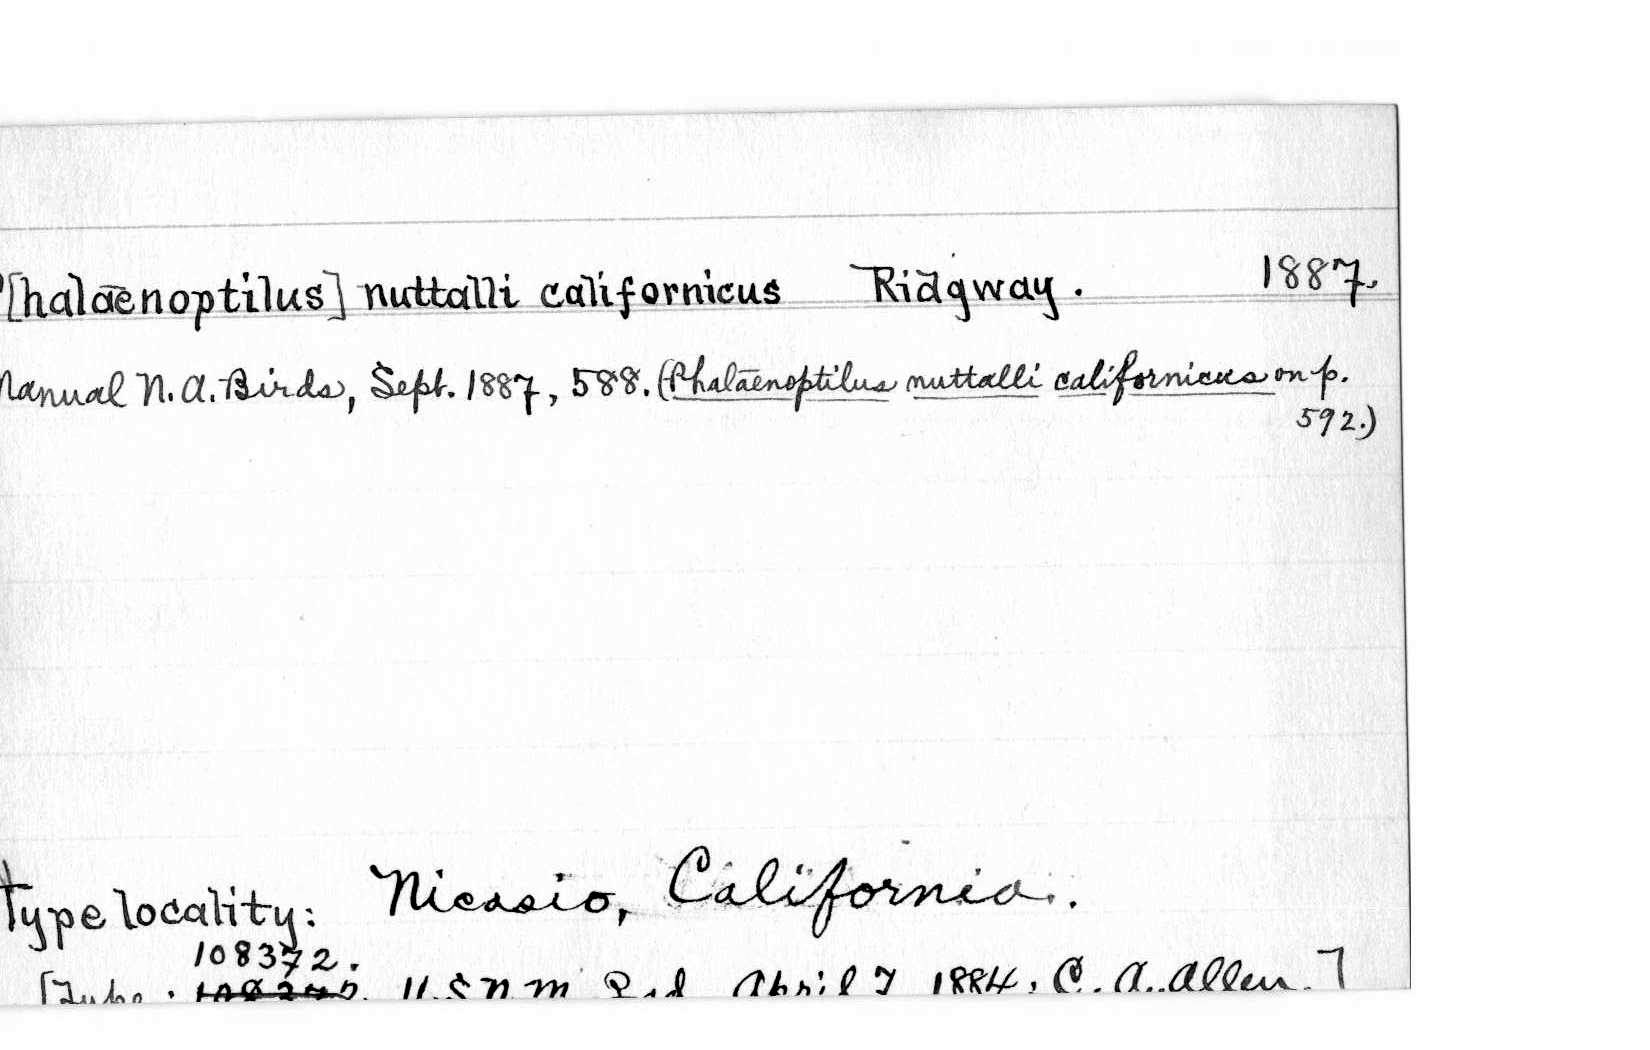 [halaenoptilus] nuttalli californicus Ridgway. 1887.
Manual N.A. Birds, Sept. 1887, 588. (Phalaenoptilus nuttalli californicus on p.
592.)
Type locality: Nicasio, California.
108372.
[Type: U.S.N.M. April 7 1884, C. A. Allen.]